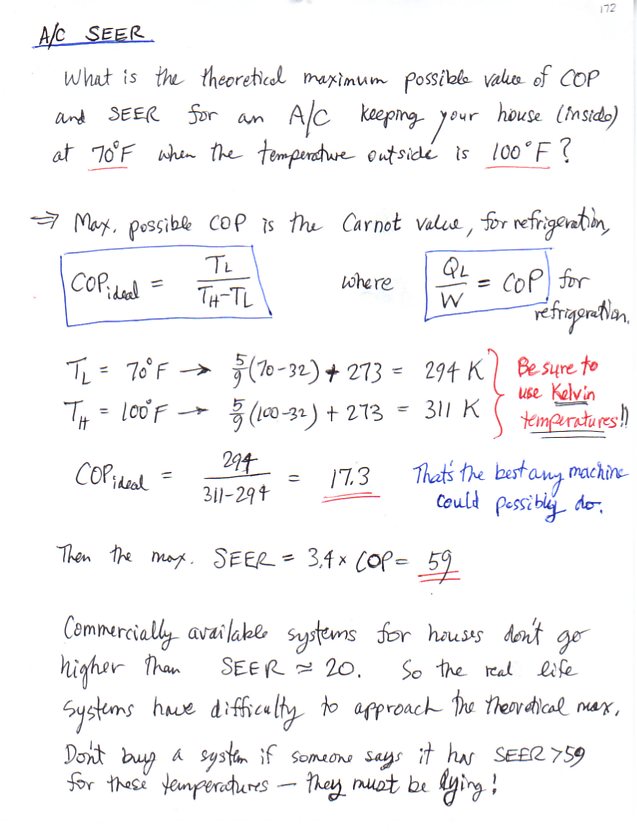 172
A/C SEER
What is the theoretical maximum possible value of COP
and SEER for an A/C keeping your house (inside)
at 70°F when the temperature outside is 100°F?
⇒ Max. possible COP is the Carnot value, for refrigeration,
COPideal = TL / TH-TL where QL / W = COP for refrigeration.
TL = 70°F → 5/9(70-32) + 273 = 294 K
TH = 100°F → 5/9(100-32) + 273 = 311 K
Be sure to
use Kelvin
temperatures!!
COPideal = 294 / 311-294 = 17.3
That's the best any machine
could possibly do.
Then the max. SEER = 3.4 × COP = 59
Commercially available systems for houses don't go
higher than SEER ≈ 20. So the real life
systems have difficulty to approach the theoretical max.
Don't buy a system if someone says it has SEER >59
for these temperatures — they must be lying!